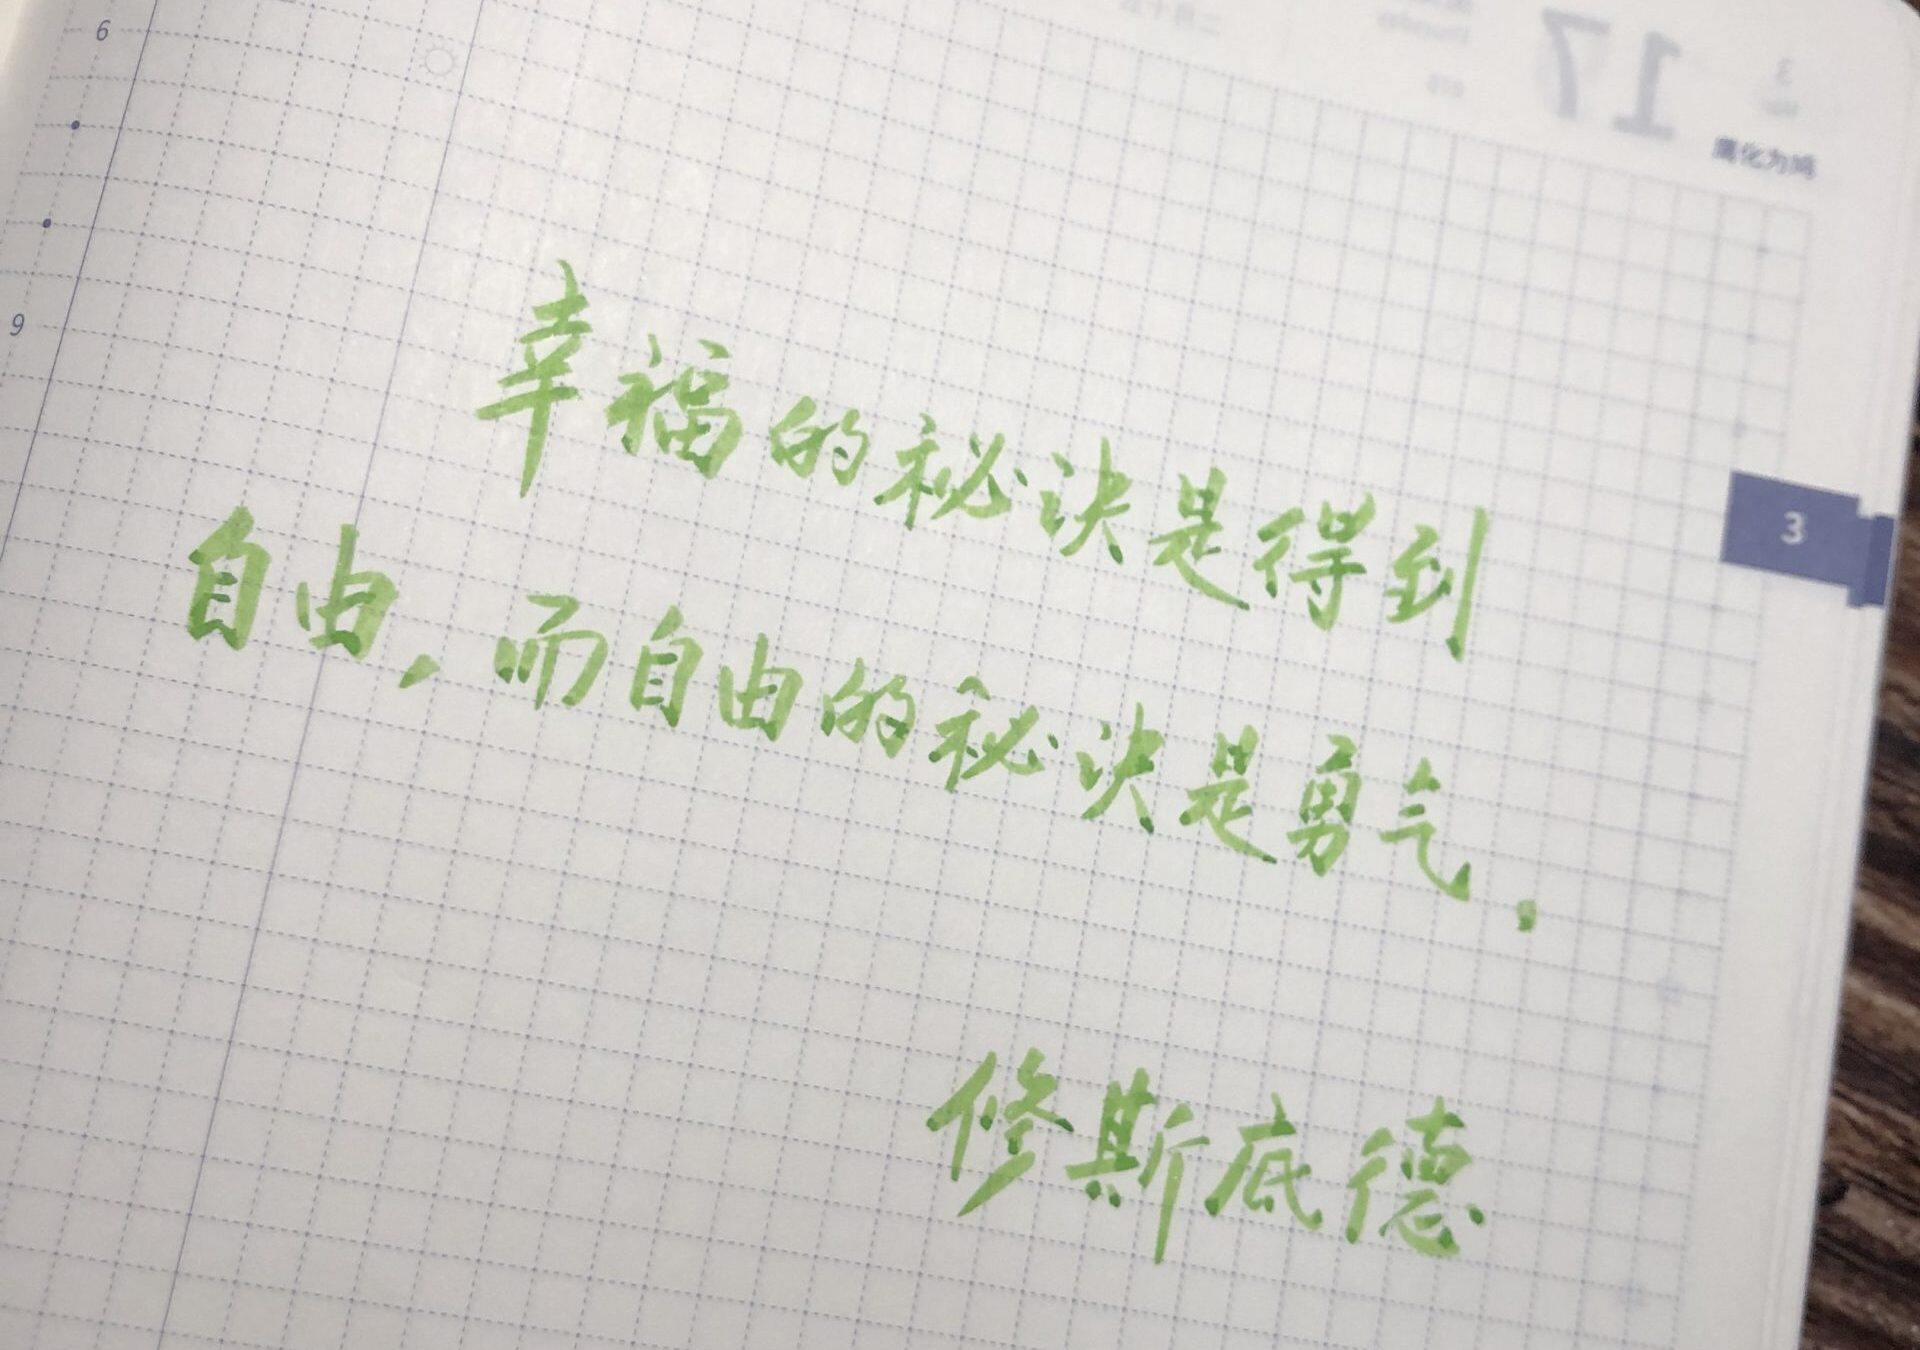 6
17
3
鹰化为鸠
9
3
幸福的秘诀是得到
自由，而自由的秘诀是勇气.
修斯底德